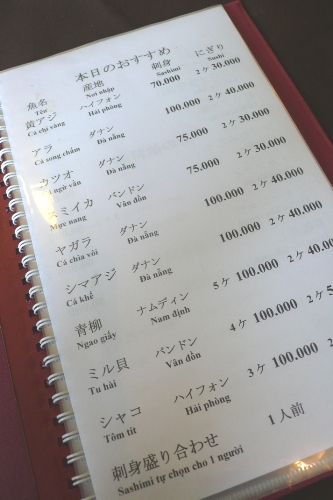 本日のおすすめ
魚名 産地 刺身 にぎり
Tên Nơi nhập Sashimi Sushi
黄アジ ハイフォン 70.000 2ケ30.000
Cá chỉ vàng Hải phòng
アラ ダナン 100.000 2ケ 40.000
Cá song chấm Đà nẵng
カツオ ダナン 75.000 2ケ 30.000
Cá ngừ vằn Đà nẵng
ミミイカ バンドン 75.000 2ケ 30.000
Mực nang Vân đồn
ヤガラ ダナン 100.000 2ケ 40.000
Cá chìa vôi Đà nẵng
シマアジ ダナン 100.000 2ケ 40.000
Cá khế Đà nẵng
青柳 ナムディン 5ケ 100.000 2ケ
Ngao giấy Nam định
ミル貝 バンドン 4ケ 100.000 2ケ
Tu hài Vân đồn
シャコ ハイフォン 3ケ 100.000 2
Tôm tít Hải phòng
刺身盛り合わせ 1人前
Sashimi tự chọn cho 1 người